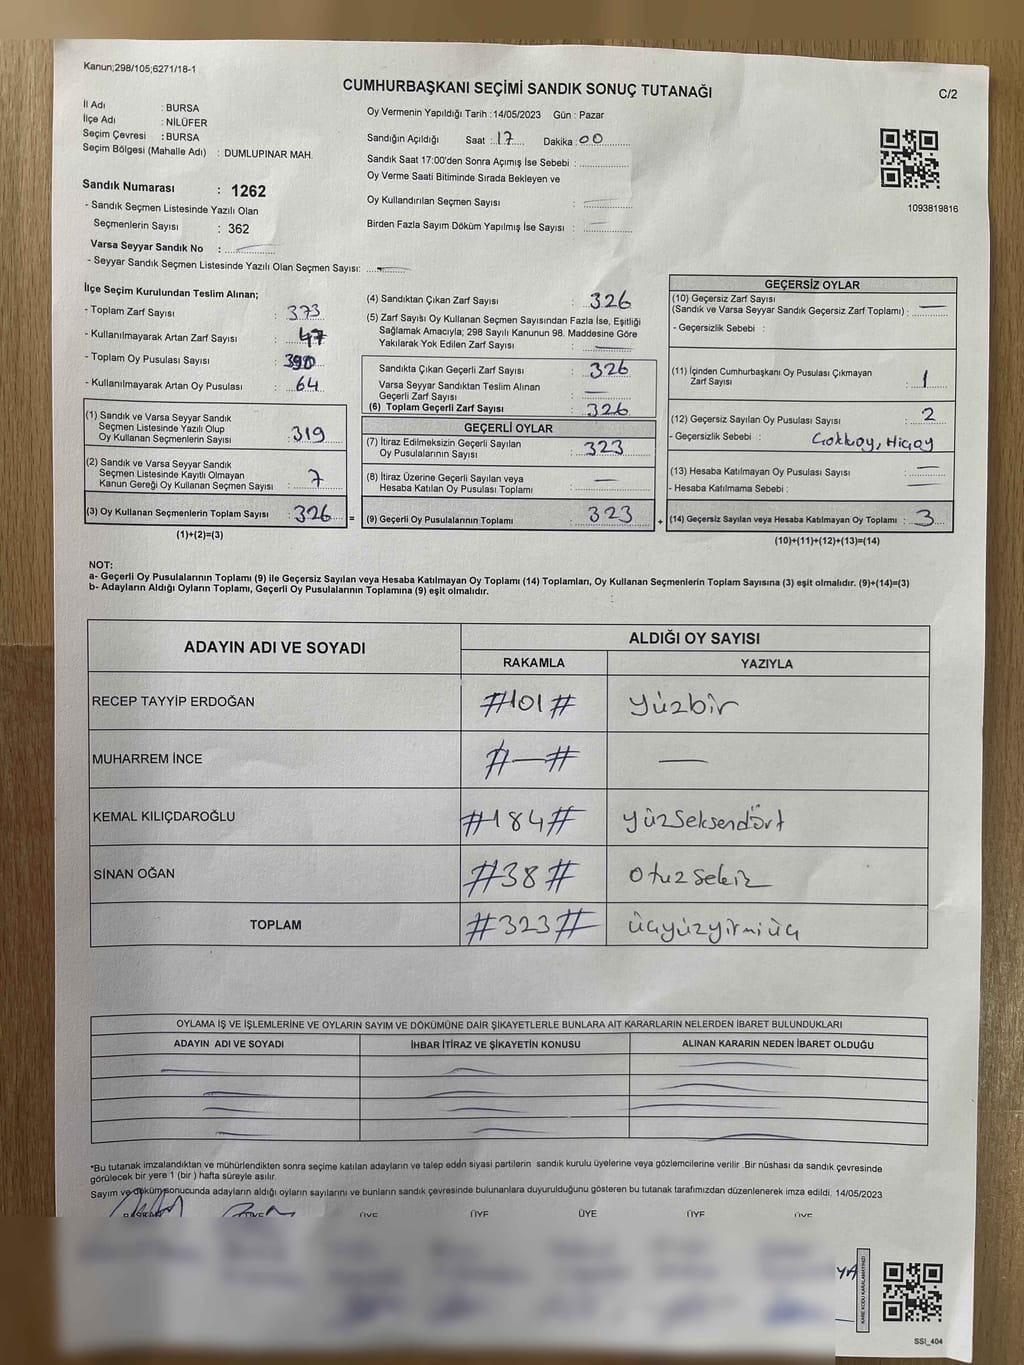 Kanun;298/105;6271/18-1
CUMHURBAŞKANI SEÇİMİ SANDIK SONUÇ TUTANAĞI
C/2
İl Adı : BURSA
İlçe Adı : NİLÜFER
Seçim Çevresi : BURSA
Seçim Bölgesi (Mahalle Adı) : DUMLUPINAR MAH.
Sandık Numarası : 1262
- Sandık Seçmen Listesinde Yazılı Olan
Seçmenlerin Sayısı : 362
Varsa Seyyar Sandık No :
- Seyyar Sandık Seçmen Listesinde Yazılı Olan Seçmen Sayısı:
Oy Vermenin Yapıldığı Tarih :14/05/2023 Gün : Pazar
Sandığın Açıldığı Saat : 17 Dakika : 00
Sandık Saat 17:00'den Sonra Açımış İse Sebebi :
Oy Verme Saati Bitiminde Sırada Bekleyen ve
Oy Kullandırılan Seçmen Sayısı : —
Birden Fazla Sayım Döküm Yapılmış İse Sayısı : —
1093819816
İlçe Seçim Kurulundan Teslim Alınan;
- Toplam Zarf Sayısı : 373
- Kullanılmayarak Artan Zarf Sayısı : 47
- Toplam Oy Pusulası Sayısı : 390
- Kullanılmayarak Artan Oy Pusulası : 64
(1) Sandık ve Varsa Seyyar Sandık
Seçmen Listesinde Yazılı Olup
Oy Kullanan Seçmenlerin Sayısı : 319
(2) Sandık ve Varsa Seyyar Sandık
Seçmen Listesinde Kayıtlı Olmayan
Kanun Gereği Oy Kullanan Seçmen Sayısı : 7
(3) Oy Kullanan Seçmenlerin Toplam Sayısı : 326 =
(1)+(2)=(3)
(4) Sandıktan Çıkan Zarf Sayısı : 326
(5) Zarf Sayısı Oy Kullanan Seçmen Sayısından Fazla İse, Eşitliği
Sağlamak Amacıyla; 298 Sayılı Kanunun 98. Maddesine Göre
Yakılarak Yok Edilen Zarf Sayısı : —
Sandıkta Çıkan Geçerli Zarf Sayısı : 326
Varsa Seyyar Sandıktan Teslim Alınan
Geçerli Zarf Sayısı : —
(6) Toplam Geçerli Zarf Sayısı : 326
GEÇERLİ OYLAR
(7) İtiraz Edilmeksizin Geçerli Sayılan
Oy Pusulalarının Sayısı : 323
(8) İtiraz Üzerine Geçerli Sayılan veya
Hesaba Katılan Oy Pusulası Toplamı : —
(9) Geçerli Oy Pusulalarının Toplamı : 323 +
GEÇERSİZ OYLAR
(10) Geçersiz Zarf Sayısı
(Sandık ve Varsa Seyyar Sandık Geçersiz Zarf Toplamı) : —
- Geçersizlik Sebebi :
(11) İçinden Cumhurbaşkanı Oy Pusulası Çıkmayan
Zarf Sayısı : 1
(12) Geçersiz Sayılan Oy Pusulası Sayısı : 2
- Geçersizlik Sebebi : Çokkoy, Hiçoy
(13) Hesaba Katılmayan Oy Pusulası Sayısı : —
- Hesaba Katılmama Sebebi : —
(14) Geçersiz Sayılan veya Hesaba Katılmayan Oy Toplamı : 3
(10)+(11)+(12)+(13)=(14)
NOT:
a- Geçerli Oy Pusulalarının Toplamı (9) ile Geçersiz Sayılan veya Hesaba Katılmayan Oy Toplamı (14) Toplamları, Oy Kullanan Seçmenlerin Toplam Sayısına (3) eşit olmalıdır. (9)+(14)=(3)
b- Adayların Aldığı Oyların Toplamı, Geçerli Oy Pusulalarının Toplamına (9) eşit olmalıdır.
ADAYIN ADI VE SOYADI
ALDIĞI OY SAYISI
RAKAMLA YAZIYLA
RECEP TAYYİP ERDOĞAN #101# yüzbir
MUHARREM İNCE #—# —
KEMAL KILIÇDAROĞLU #184# yüzseksendört
SİNAN OĞAN #38# otuzsekiz
TOPLAM #323# üçyüzyirmiüç
OYLAMA İŞ VE İŞLEMLERİNE VE OYLARIN SAYIM VE DÖKÜMÜNE DAİR ŞİKAYETLERLE BUNLARA AİT KARARLARIN NELERDEN İBARET BULUNDUKLARI
ADAYIN ADI VE SOYADI İHBAR İTİRAZ VE ŞİKAYETİN KONUSU ALINAN KARARIN NEDEN İBARET OLDUĞU
*Bu tutanak imzalandıktan ve mühürlendikten sonra seçime katılan adayların ve talep eden siyasi partilerin sandık kurulu üyelerine veya gözlemcilerine verilir .Bir nüshası da sandık çevresinde
görülecek bir yere 1 (bir ) hafta süreyle asılır.
Sayım ve döküm sonucunda adayların aldığı oyların sayılarını ve bunların sandık çevresinde bulunanlara duyurulduğunu gösteren bu tutanak tarafımızdan düzenlenerek imza edildi. 14/05/2023
BAŞKAN ÜYE ÜYE ÜYE ÜYE ÜYE ÜYE
KARE KODU KARALAMAYINIZ!
SSI_404